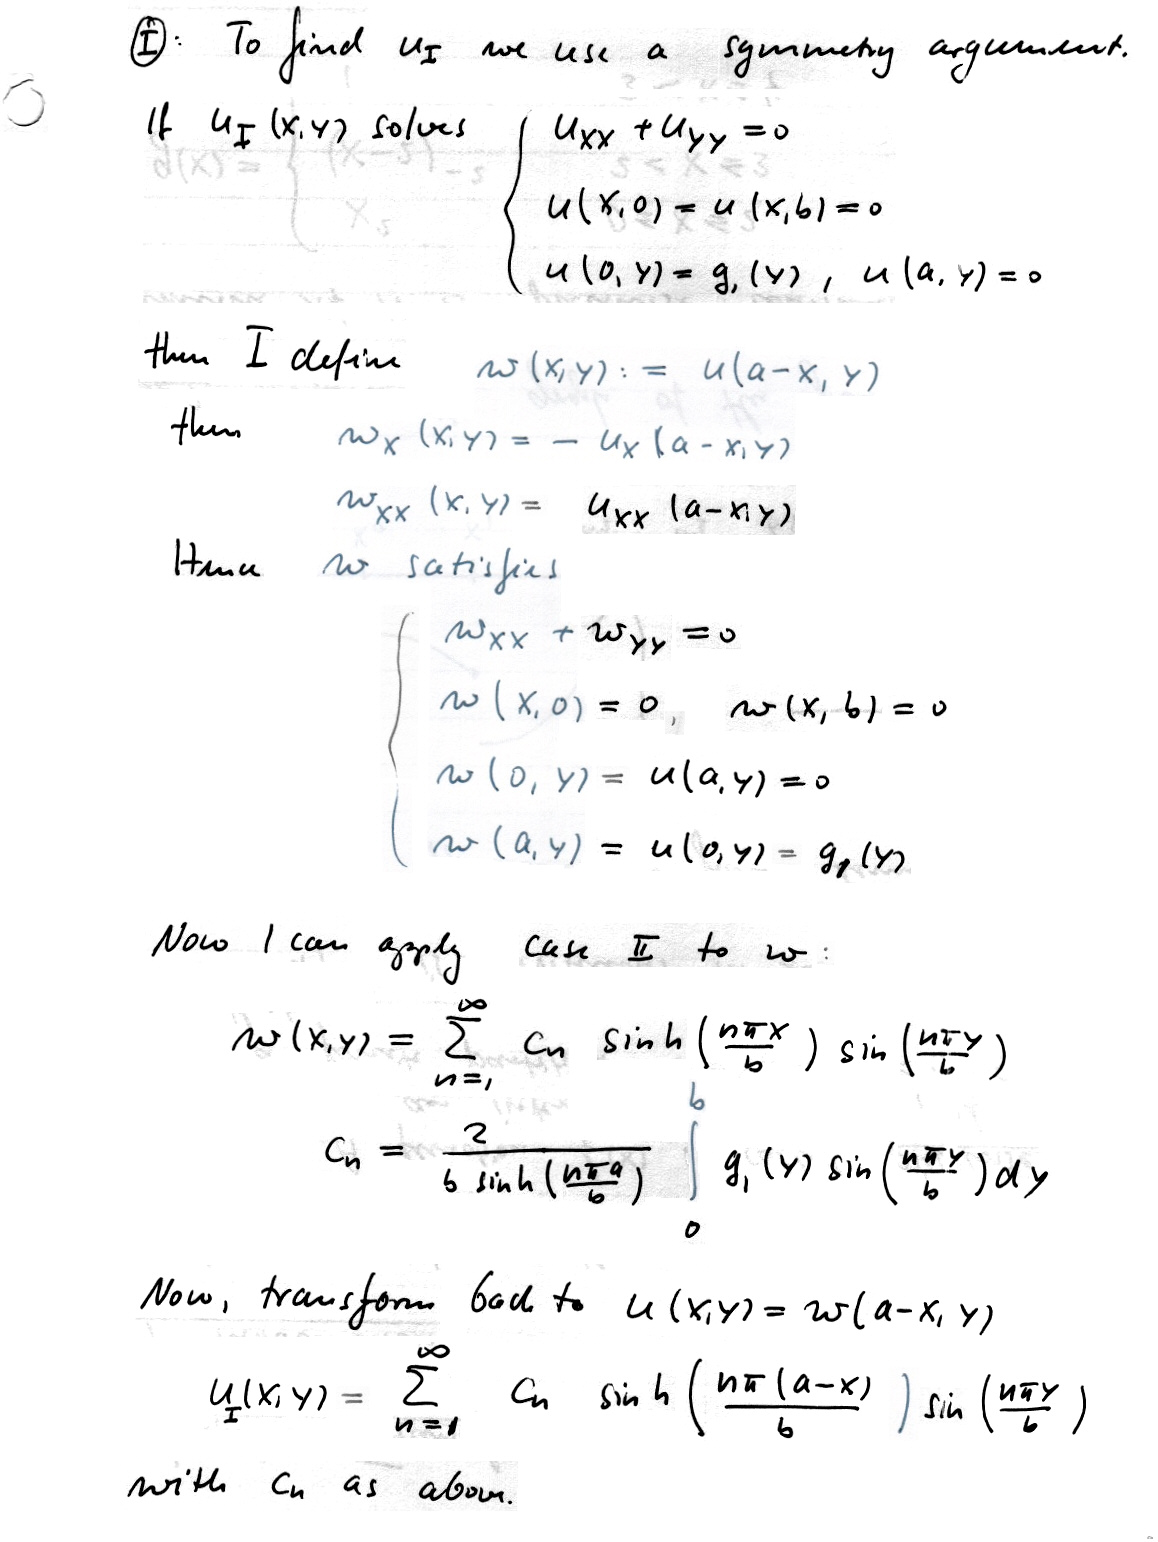 Ⓘ: To find u_I we use a symmetry argument.
If u_I (x,y) solves { u_xx + u_yy = 0
u(x,0) = u(x,b) = 0
u(0,y) = g_1(y), u(a,y) = 0
then I define w(x,y) := u(a-x, y)
then w_x (x,y) = - u_x (a-x,y)
w_xx (x,y) = u_xx (a-x,y)
Hence w satisfies
{ w_xx + w_yy = 0
w(x,0) = 0, w(x,b) = 0
w(0,y) = u(a,y) = 0
w(a,y) = u(0,y) = g_1(y)
Now I can apply case II to w:
w(x,y) = ∑_{n=1}^∞ c_n sinh(nπx/b) sin(nπy/b)
c_n = 2/(b sinh(nπa/b)) ∫_0^b g_1(y) sin(nπy/b) dy
Now, transform back to u(x,y) = w(a-x, y)
u_I(x,y) = ∑_{n=1}^∞ c_n sinh(nπ(a-x)/b) sin(nπy/b)
with c_n as above.